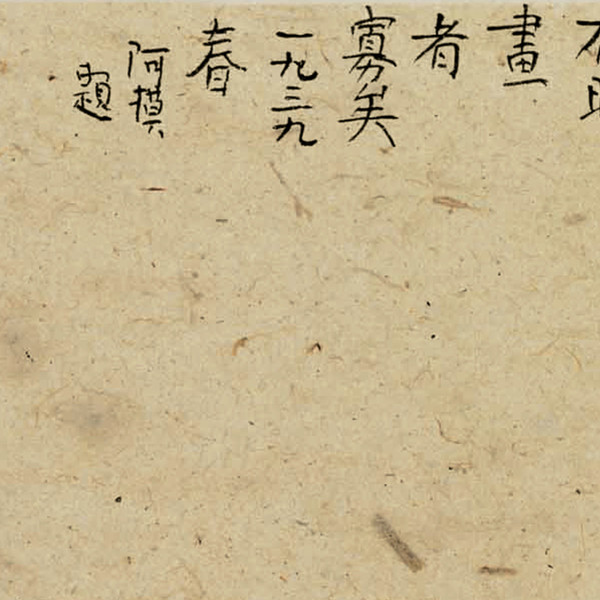 畫
者
寡美
一九三九
春
阿摸
題